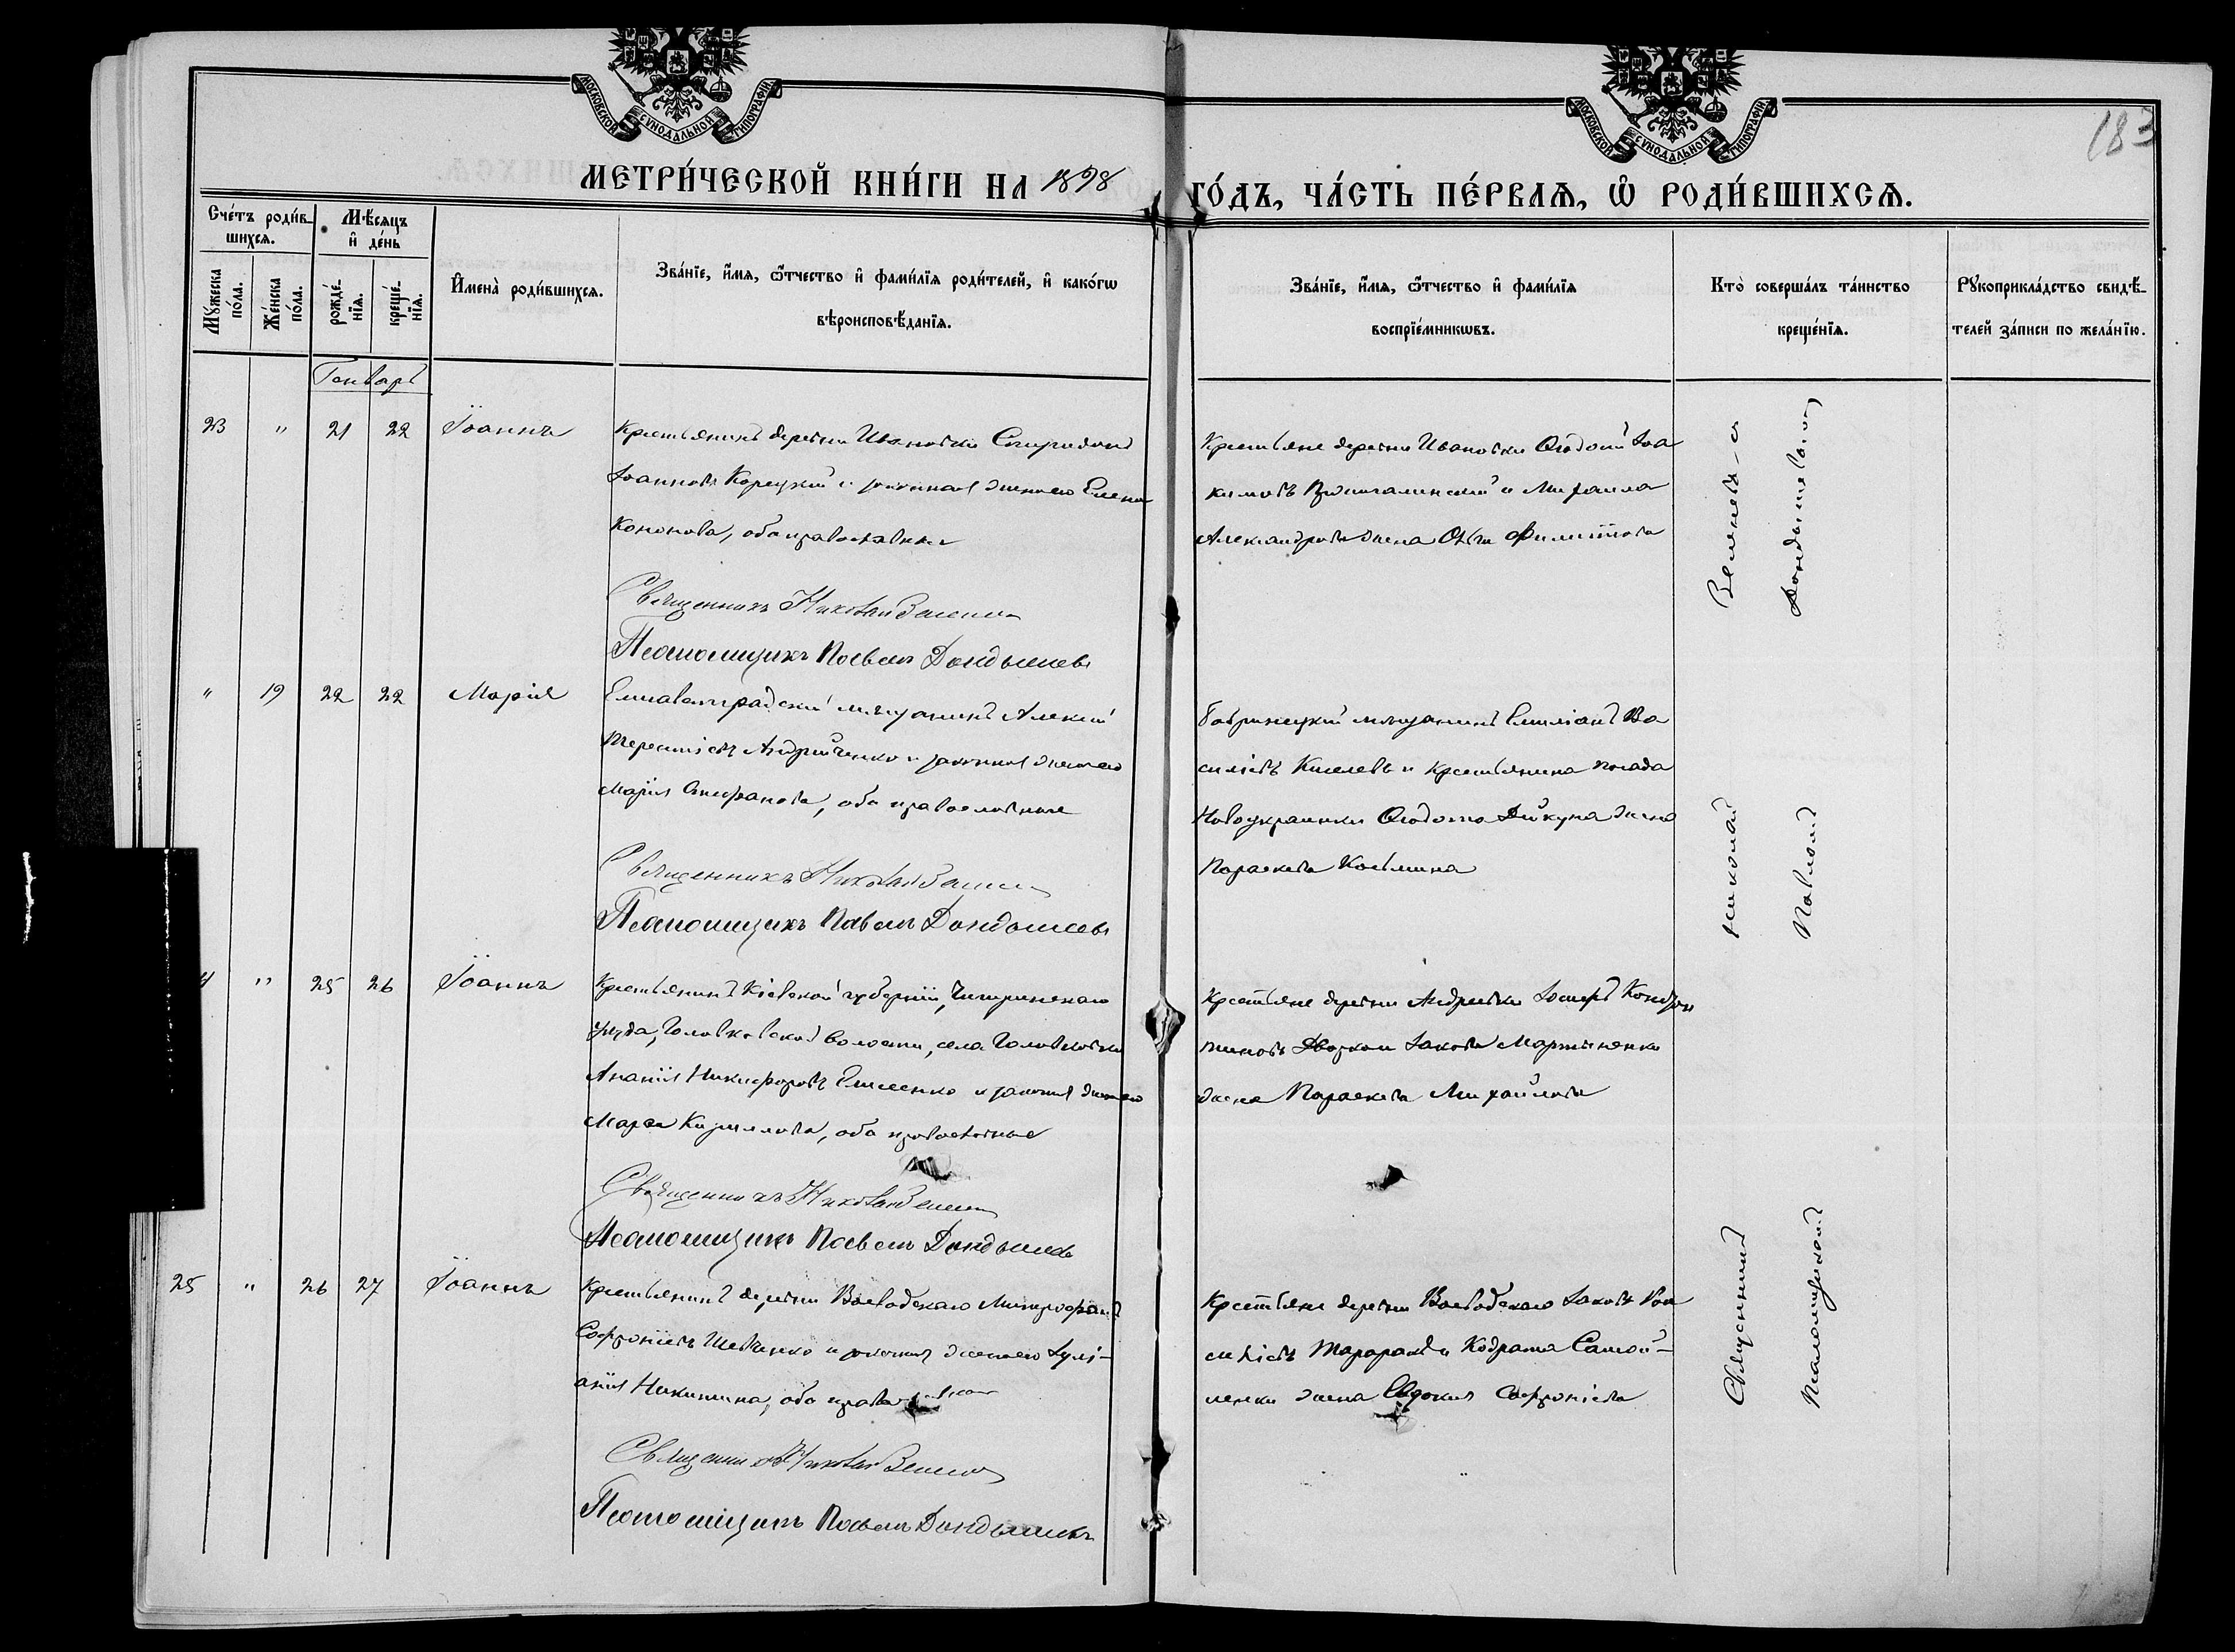 МОСКОВСКОЙ СУНОДАЛЬНОЙ ТИПОГРАФІИ
МОСКОВСКОЙ СУНОДАЛЬНОЙ ТИПОГРАФІИ
183
МЕТРИ́ЧЕСКОЙ КНИ́ГИ НА 1898 ГО́ДЪ, ЧА́СТЬ ПЕ́РВАѦ, Ѡ҆ РОДИ́ВШИХСѦ.
Сче́тъ роди́в-
шихсѧ.
Мѣ́сѧцъ
и҆ де́нь
Мꙋ́жеска
по́ла.
Же́нска
по́ла.
рожде́-
нїѧ.
креще́-
нїѧ.
И҆мена̀ роди́вшихсѧ.
Зва́нїе, и҆́мѧ, ѻ҆́тчество и҆ фами́лїѧ роди́телей, и҆ како́гѡ
вѣроисповѣ́данїѧ.
Зва́нїе, и҆́мѧ, ѻ҆́тчество и҆ фами́лїѧ
воспрїе́мникѡвъ.
Кто̀ соверша́лъ та́инство
креще́нїѧ.
Рꙋкоприкла́дство свидѣ́-
телей за́писи по жела́нїю.
Генварь
23 " 21 22 Іоаннъ
Крестьянинъ деревни Ивановки Спиридонъ
Іоанновъ Корецкій и законная жена его Елена
Кононова, оба православные
Священникъ Николай
Псаломщикъ Павелъ Дондышевъ
Крестьяне деревни Ивановки Ѳеодотій Іоа
кимовъ и Михаила
Александрова жена Филиппова
" 19 22 22 Марія
Елисаветградскій мѣщанинъ Алексій
Терентіевъ Андрійченко и законная жена его
Марія Стефанова, оба православные
Священникъ Николай
Псаломщикъ Павелъ Дондышевъ
Бобринецкій мѣщанинъ Емиліанъ Ва
силіевъ Киселевъ и крестьянина посада
Новоукраинки Ѳеодота Дикуна жена
Параскева Косьмина
4 " 25 26 Іоаннъ
Крестьянинъ Кіевской губерніи, Чигиринскаго
уѣзда, Головковской волости, села Головковки
Ананія Никифоровъ Елисеенко и законная жена его
Марѳа Кириллова, оба православные
Священникъ Николай
Псаломщикъ Павелъ Дондышевъ
Крестьяне деревни Андреевки Іосифъ Кондра
тиновъ и Іакова Мартыненки
жена Параскева Михайлова
25 " 26 27 Іоаннъ
Крестьянинъ деревни Воеводскаго Митрофанъ
Софроніевъ Шевченко и законная жена его Іулі-
анія Никитина, оба православные
Священникъ Николай
Псаломщикъ Павелъ Дондышевъ
Крестьяне деревни Воеводскаго Іаковъ Ва
силіевъ и Кодрата Самой-
ленки жена Евдокія Софроніева
Священникъ Николай
Псаломщикомъ Павломъ Дондышевымъ